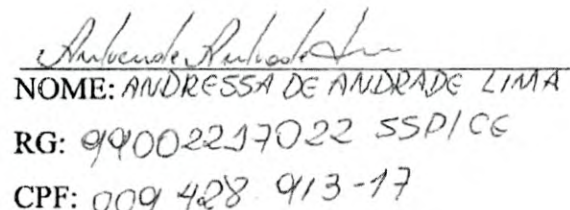 NOME: ANDRESSA DE ANDRADE LIMA
RG: 99002217022 SSP/CE
CPF: 009 428 913-17